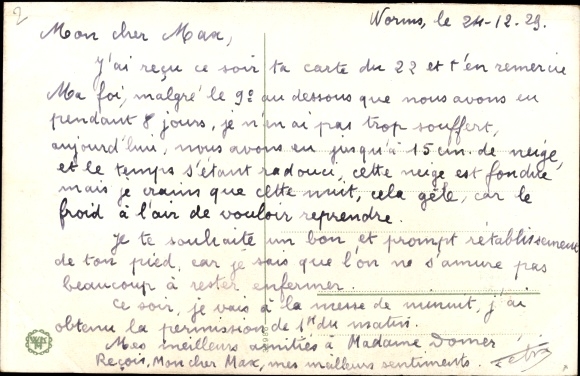 2
Worms, le 24-12-29.
Mon cher Max,
J'ai reçu ce soir ta carte du 22 et t'en remercie
Ma foi, malgré le 9° au dessous que nous avons eu
pendant 8 jours, je n'en ai pas trop souffert,
aujourd'hui, nous avons eu jusqu'à 15 cm. de neige,
et le temps s'étant radouci, cette neige est fondue
mais je crains que cette nuit, cela gèle, car le
froid à l'air de vouloir reprendre.
Je te souhaite un bon et prompt rétablissement
de ton pied, car je sais que l'on ne s'amuse pas
beaucoup à rester enfermer.
Ce soir, je vais à la messe de minuit, j'ai
obtenu la permission de 1h du matin.
Mes meilleurs amitiés à Madame Domer
Reçois, Mon cher Max, mes meilleurs sentiments.